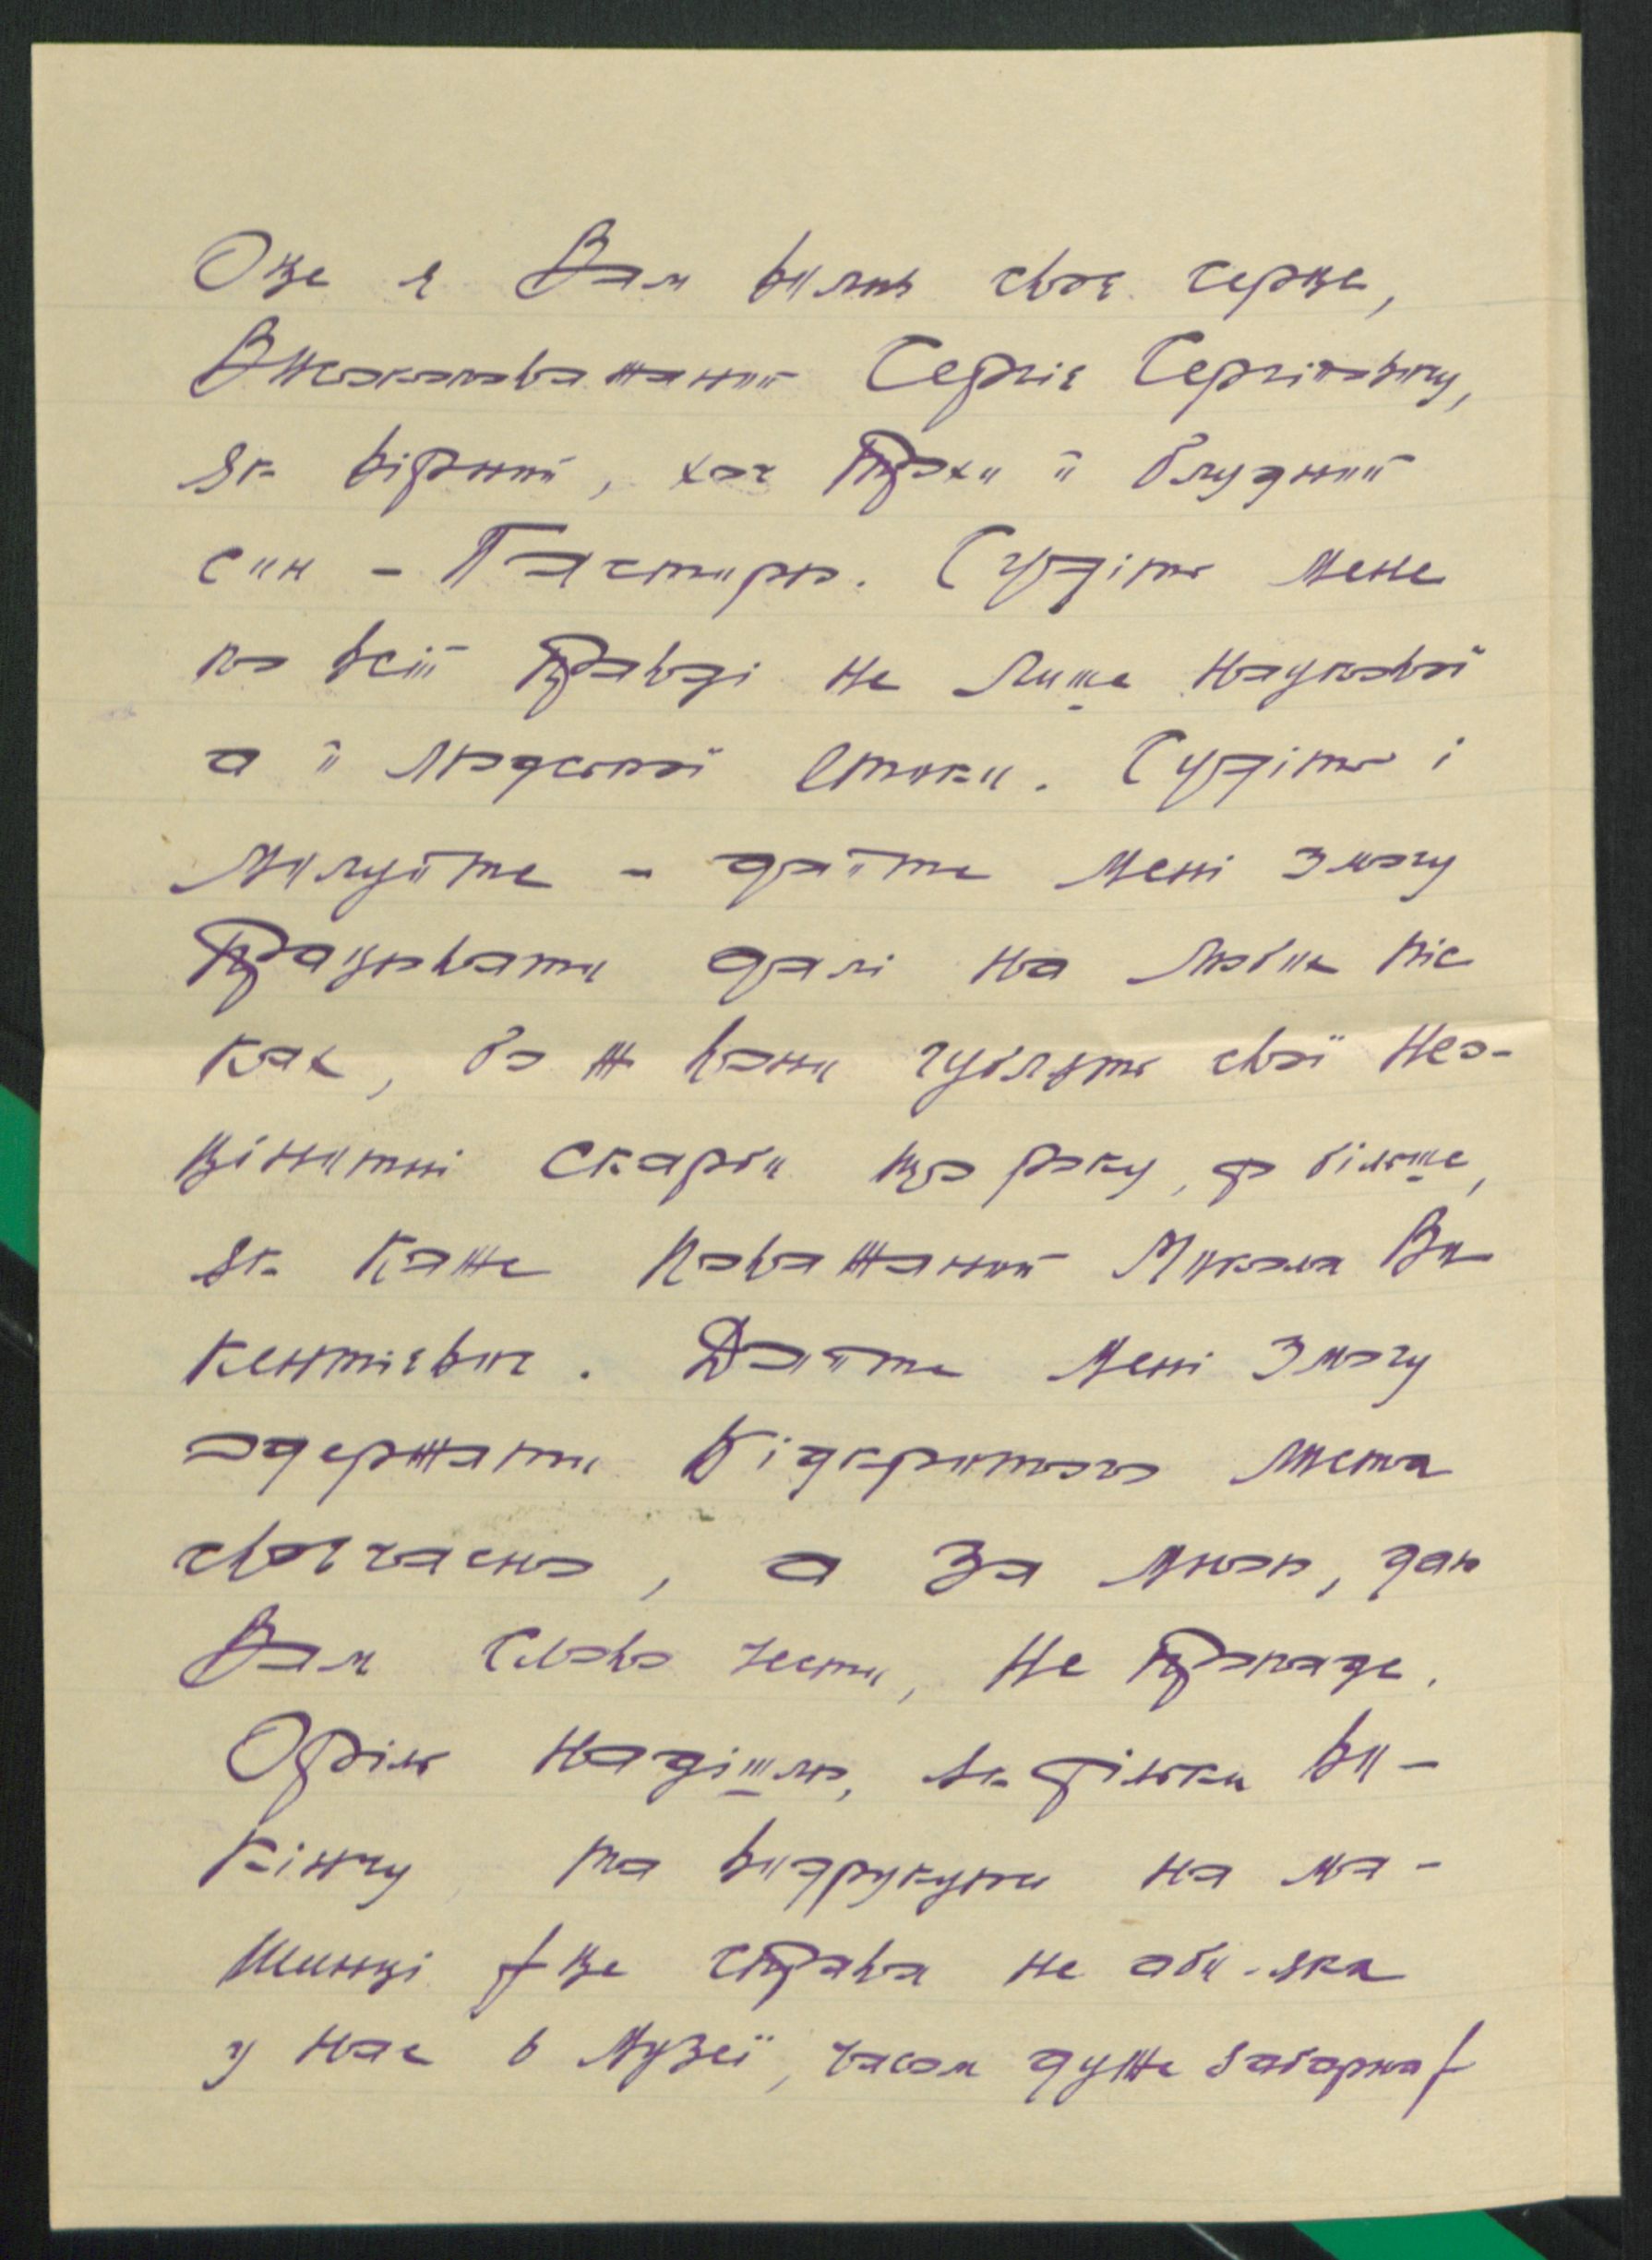 Оце я Вам вилив своє серце,
Високоповажаний Сергіє Сергійовичу,
як вірний, хоч трохи й блудний
син – Пастирю. Судіть мене
по всій правді не лише наукової
а й людської етики. Судіть і
милуйте – дайте мені змогу
працювати далі на любих піс
ках, бо ж вони гублять свої нео-
цінитні скарби що року, то більше,
як каже поважаний Микола Ви
кентієвич. Дайте мені змогу
одержати відкритого листа
своєчасно, а за мною, даю
Вам слово чести, не пропаде.
Оріль надішлю, як тільки ви-
кінчу, та видрукую на ма-
шинці /це справа не аби-яка
у нас в Музеї, часом дуже забарна/